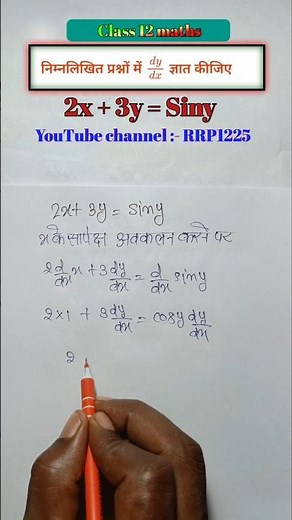 Class 12 maths
निम्नलिखित प्रश्नों में dy/dx ज्ञात कीजिए
2x + 3y = Siny
YouTube channel :- RRP1225
2x + 3y = siny
x के सापेक्ष अवकलन करने पर
2 d/dx x + 3 dy/dx = d/dx siny
2×1 + 3 dy/dx = cosy dy/dx
2